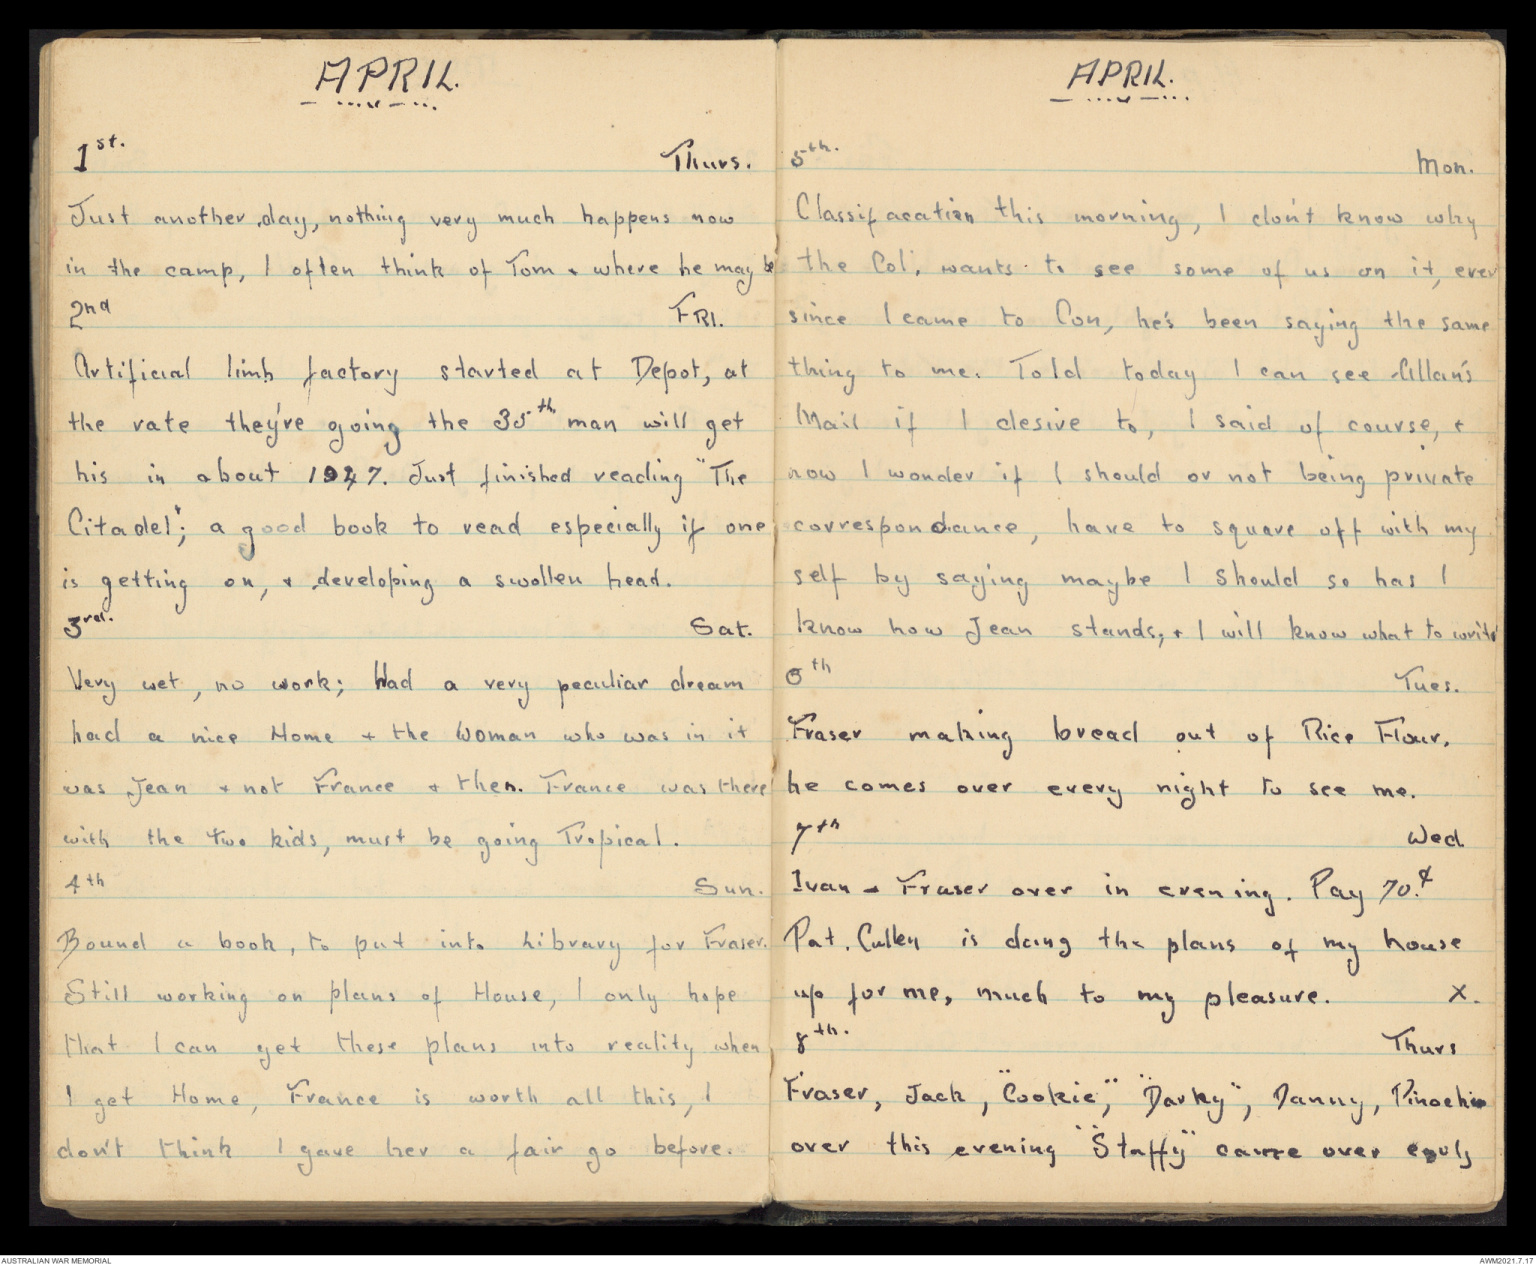 APRIL.
1st. Thurs.
Just another day, nothing very much happens now
in the camp, I often think of Tom + where he may be
2nd FRI.
Artificial limb factory started at Depot, at
the rate they're going the 35th man will get
his in about 1947. Just finished reading "The
Citadel"; a good book to read especially if one
is getting on, + developing a swollen head.
3rd. Sat.
Very wet, no work; Had a very peculiar dream
had a nice Home + the Woman who was in it
was Jean + not France + then. France was there
with the two kids, must be going Tropical.
4th Sun.
Bound a book, to put into Library for Fraser.
Still working on plans of House, I only hope
that I can get these plans into reality when
I get Home, France is worth all this, I
don't think I gave her a fair go before.
APRIL.
5th. Mon.
Classifacation this morning, I don't know why
the Col. wants to see some of us on it, ever
since I came to Con, he's been saying the same
thing to me. Told today I can see Allan's
Mail if I desire to, I said of course, +
now I wonder if I should or not being private
correspondance, have to square off with my
self by saying maybe I should so has I
know how Jean stands, + I will know what to write
6th Tues.
Fraser making bread out of Rice Flour,
he comes over every night to see me.
7th Wed
Ivan + Fraser over in evening. Pay 70.¢
Pat. Cullen is doing the plans of my house
up for me, much to my pleasure. X.
8th. Thurs
Fraser, Jack, "Cookie", "Darky", Danny, Pinochio
over this evening "Staffy" came over early
AUSTRALIAN WAR MEMORIAL
AWM2021.7.17